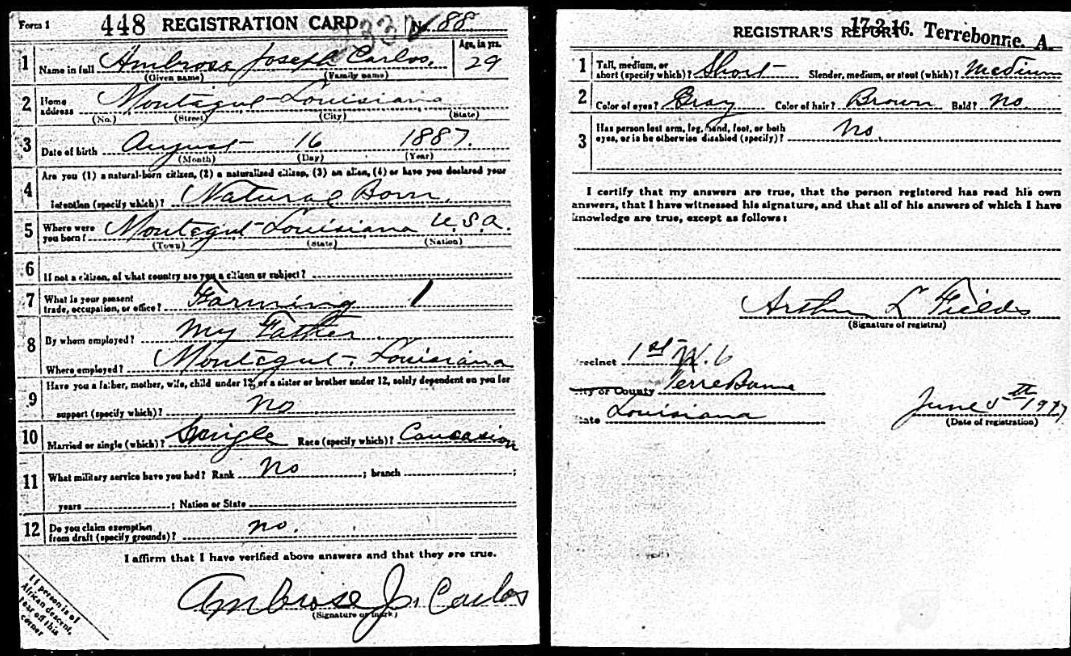 Form 1 448 REGISTRATION CARD No. 88
Age, in yrs.
1 Name in full Ambrose Joseph Carlos. 29
(Given name) (Family name)
2 Home address Montegut Louisiana
(No.) (Street) (City) (State)
3 Date of birth August 16 1887.
(Month) (Day) (Year)
Are you (1) a natural-born citizen, (2) a naturalized citizen, (3) an alien, (4) or have you declared your
4 intention (specify which)? Natural Born.
5 Where were you born? Montegut Louisiana U.S.A.
(Town) (State) (Nation)
6 If not a citizen, of what country are you a citizen or subject?
7 What is your present trade, occupation, or office? Farming 1
8 By whom employed? My Father
Where employed? Montegut, Louisiana
Have you a father, mother, wife, child under 12, or a sister or brother under 12, solely dependent on you for
9 support (specify which)? No
10 Married or single (which)? Single Race (specify which)? Caucasion
11 What military service have you had? Rank No ; branch ;
years ; Nation or State
12 Do you claim exemption from draft (specify grounds)? no.
I affirm that I have verified above answers and that they are true.
Ambrose J. Carlos
(Signature or mark)
If person is of
African descent,
tear off this
corner
17-3-16. Terrebonne. A.
REGISTRAR'S REPORT
1 Tall, medium, or short (specify which)? Short Slender, medium, or stout (which)? Medium
2 Color of eyes? Gray Color of hair? Brown Bald? No.
3 Has person lost arm, leg, hand, foot, or both eyes, or is he otherwise disabled (specify)? No.
I certify that my answers are true, that the person registered has read his own
answers, that I have witnessed his signature, and that all of his answers of which I have
knowledge are true, except as follows:
Arthur L Fields
(Signature of registrar)
Precinct 1st W. 6
City or County TerreBonne
State Louisiana June 5th 1917
(Date of registration)